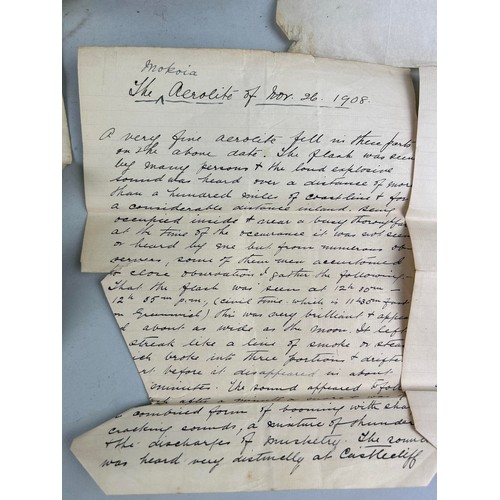 Mokoia
The ^ Aerolite of Nov. 26. 1908.
A very fine aerolite fell in these parts
on the above date. The flash was seen
by many persons & the loud explosive
sound was heard over a distance of more
than a hundred miles of coast line & for
a considerable distance inland. Being
occupied inside & near a busy thoroughfare
at the time of the occurrence it was not seen
or heard by me but from numerous ob-
servers, some of them men accustomed
to close observation I gather the following.
That the flash was seen at 12h 30m –
12h 35m p.m. (civil time which is 11h 30m fast
on Greenwich) this was very brilliant & appea
d about as wide as the Moon. It left
streak like a line of smoke or stea
ch broke into three portions & drifte
before it disappeared in about
minutes. The sound appeared to fol
after a minute
combined form of booming with sha
cracking sounds, a mixture of thunder
& the discharges of musketry. The soun
was heard very distinctly at Castlecliff